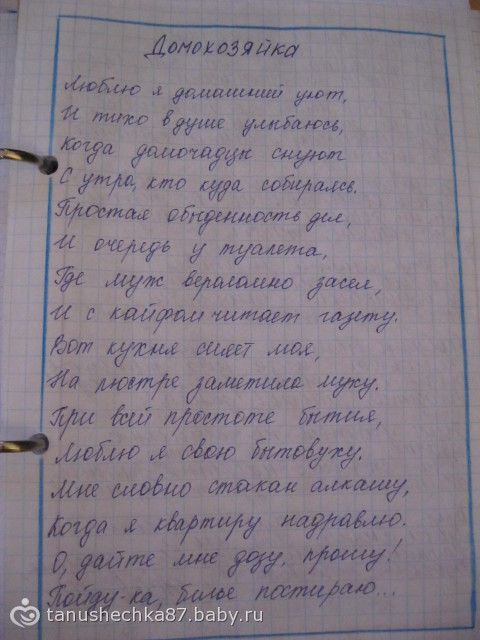 Домохозяйка
Люблю я домашний уют,
И тихо в душе улыбаюсь,
Когда домочадцы снуют
С утра, кто куда собираясь.
Простая обыденность дел,
И очередь у туалета,
Где муж вероломно засел,
И с кайфом читает газету.
Вот кухня сияет моя,
На люстре заметила муху.
При всей простоте бытия,
Люблю я свою бытовуху.
Мне словно стакан алкашу,
Когда я квартиру надравлю.
О, дайте мне дозу, прошу!
Пойду-ка, бельё постираю...
tanushechka87.baby.ru